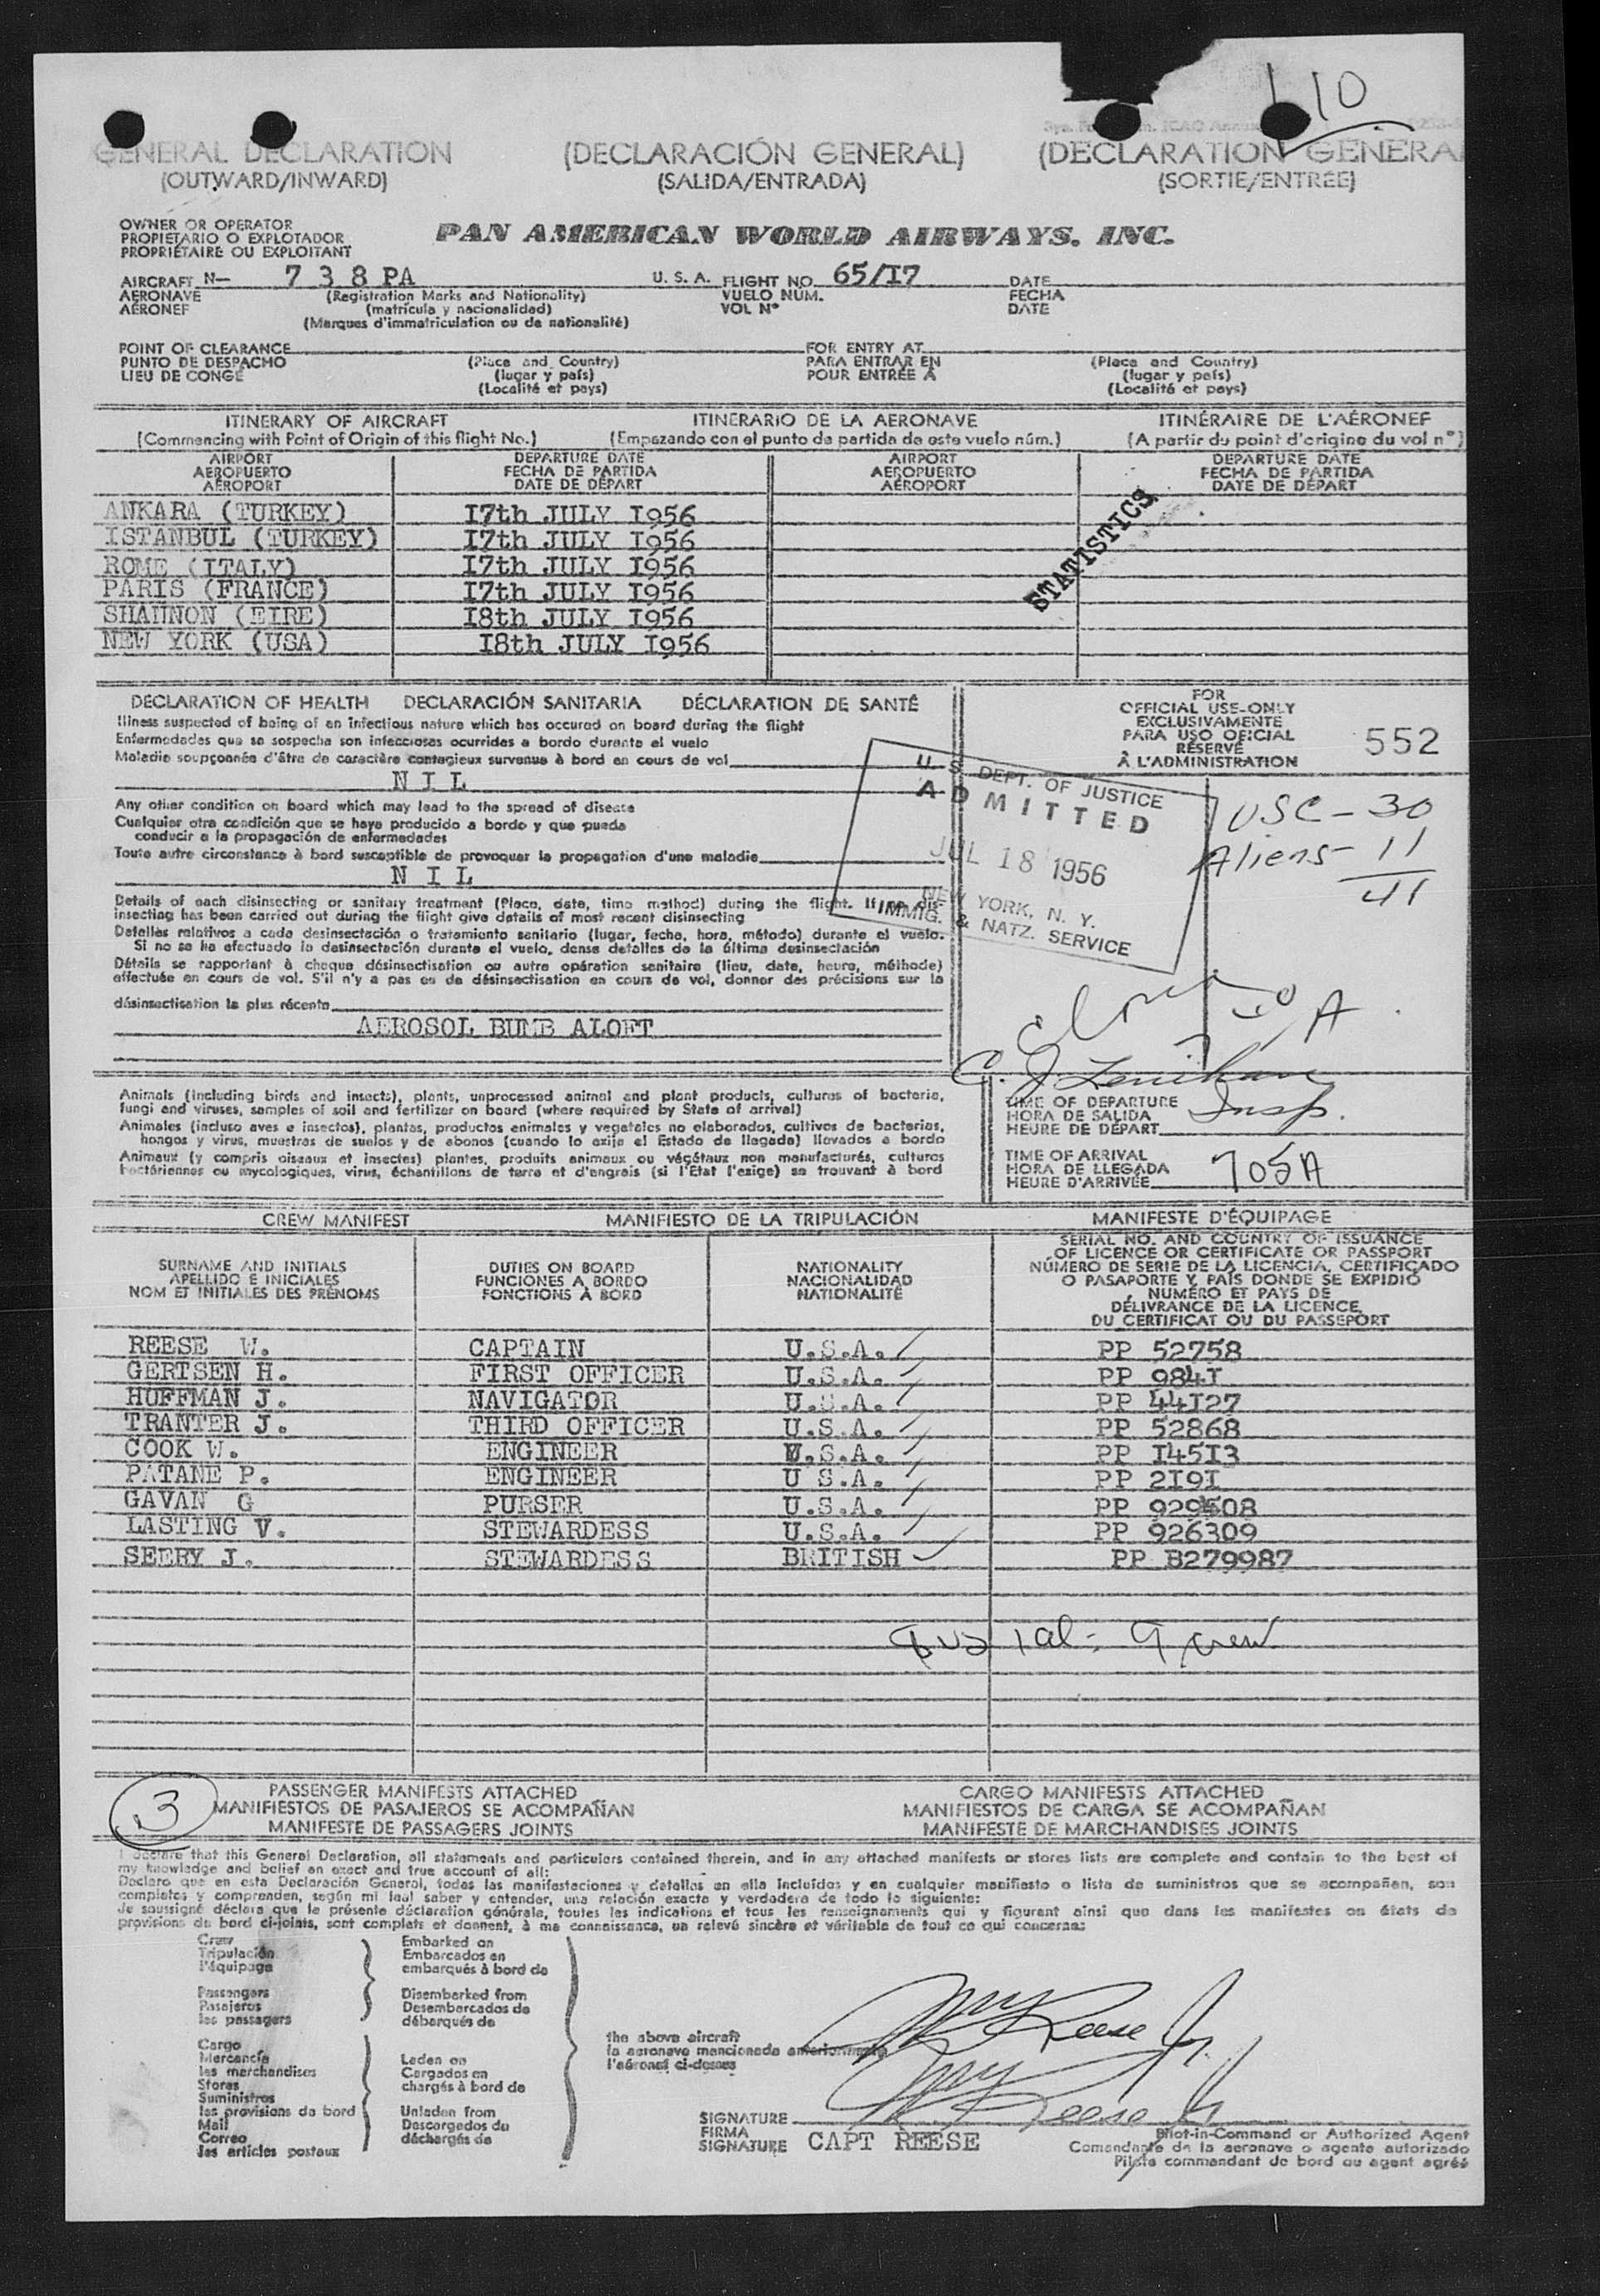 110
GENERAL DECLARATION (DECLARACIÓN GENERAL) (DECLARATION GENERA
(OUTWARD/INWARD) (SALIDA/ENTRADA) (SORTIE/ENTRÉE)
OWNER OR OPERATOR
PROPIETARIO O EXPLOTADOR
PROPRIÉTAIRE OU EXPLOITANT
PAN AMERICAN WORLD AIRWAYS, INC.
AIRCRAFT N- 7 3 8 PA U. S. A. FLIGHT NO. 65/I7 DATE
AERONAVE (Registration Marks and Nationality) VUELO NÚM. FECHA
AÉRONEF (matrícula y nacionalidad) VOL N° DATE
(Marques d'immatriculation ou de nationalité)
POINT OF CLEARANCE FOR ENTRY AT
PUNTO DE DESPACHO (Place and Country) PARA ENTRAR EN (Place and Country)
LIEU DE CONGÉ (lugar y país) POUR ENTRÉE À (lugar y país)
(Localité et pays) (Localité et pays)
ITINERARY OF AIRCRAFT ITINERARIO DE LA AERONAVE ITINÉRAIRE DE L'AÉRONEF
(Commencing with Point of Origin of this flight No.) (Empezando con el punto de partida de este vuelo núm.) (A partir du point d'origine du vol n°)
AIRPORT DEPARTURE DATE AIRPORT DEPARTURE DATE
AEROPUERTO FECHA DE PARTIDA AEROPUERTO FECHA DE PARTIDA
AÉROPORT DATE DE DÉPART AÉROPORT DATE DE DÉPART
ANKARA (TURKEY) I7th JULY I956
ISTANBUL (TURKEY) I7th JULY I956
ROME (ITALY) I7th JULY I956
PARIS (FRANCE) I7th JULY I956
SHANNON (EIRE) I8th JULY I956
NEW YORK (USA) I8th JULY I956
STATISTICS
DECLARATION OF HEALTH DECLARACIÓN SANITARIA DÉCLARATION DE SANTÉ
Illness suspected of being of an infectious nature which has occured on board during the flight
Enfermedades que se sospecha son infecciosas ocurridas a bordo durante el vuelo
Maladie soupçonnée d'être de caractère contagieux survenue à bord en cours de vol
N I L
Any other condition on board which may lead to the spread of disease
Cualquier otra condición que se haya producido a bordo y que pueda
conducir a la propagación de enfermedades
Toute autre circonstance à bord susceptible de provoquer la propagation d'une maladie
N I L
Details of each disinsecting or sanitary treatment (Place, date, time method) during the flight. If no dis-
insecting has been carried out during the flight give details of most recent disinsecting
Detalles relativos a cada desinsectación o tratamiento sanitario (lugar, fecha, hora, método) durante el vuelo.
Si no se ha efectuado la desinsectación durante el vuelo, dense detalles de la última desinsectación
Détails se rapportant à chaque désinsectisation ou autre opération sanitaire (lieu, date, heure, méthode)
effectuée en cours de vol. S'il n'y a pas eu de désinsectisation en cours de vol, donner des précisions sur la
désinsectisation la plus récente
AEROSOL BUMB ALOFT
FOR
OFFICIAL USE-ONLY
EXCLUSIVAMENTE
PARA USO OFICIAL
RÉSERVÉ
À L'ADMINISTRATION
552
U. S. DEPT. OF JUSTICE
ADMITTED
JUL 18 1956
NEW YORK, N. Y.
IMMIG. & NATZ. SERVICE
USC - 30
Aliens - 11
41
Insp.
Animals (including birds and insects), plants, unprocessed animal and plant products, cultures of bacteria,
fungi and viruses, samples of soil and fertilizer on board (where required by State of arrival)
Animales (incluso aves e insectos), plantas, productos animales y vegetales no elaborados, cultivos de bacterias,
hongos y virus, muestras de suelos y de abonos (cuando lo exija el Estado de llegada) llevados a bordo
Animaux (y compris oiseaux et insectes) plantes, produits animaux ou végétaux non manufacturés, cultures
bactériennes ou mycologiques, virus, échantillons de terre et d'engrais (si l'Etat l'exige) se trouvant à bord
TIME OF DEPARTURE
HORA DE SALIDA
HEURE DE DÉPART
TIME OF ARRIVAL
HORA DE LLEGADA
HEURE D'ARRIVÉE 705A
CREW MANIFEST MANIFIESTO DE LA TRIPULACIÓN MANIFESTE D'ÉQUIPAGE
SURNAME AND INITIALS
APELLIDO E INICIALES
NOM ET INITIALES DES PRÉNOMS
DUTIES ON BOARD
FUNCIONES A BORDO
FONCTIONS À BORD
NATIONALITY
NACIONALIDAD
NATIONALITÉ
SERIAL NO. AND COUNTRY OF ISSUANCE
OF LICENCE OR CERTIFICATE OR PASSPORT
NÚMERO DE SERIE DE LA LICENCIA, CERTIFICADO
O PASAPORTE Y PAÍS DONDE SE EXPIDIÓ
NUMÉRO ET PAYS DE
DÉLIVRANCE DE LA LICENCE
DU CERTIFICAT OU DU PASSEPORT
REESE W. CAPTAIN U.S.A. PP 52758
GERTSEN H. FIRST OFFICER U.S.A. PP 984I
HUFFMAN J. NAVIGATOR U.S.A. PP 44I27
TRANTER J. THIRD OFFICER U.S.A. PP 52868
COOK W. ENGINEER U.S.A. PP I45I3
PATANE P. ENGINEER U S.A. PP 2I9I
GAVAN G PURSER U.S.A. PP 929508
LASTING V. STEWARDESS U.S.A. PP 926309
SEERY J. STEWARDESS BRITISH PP B279987
8 US 1 al = 9 crew
3
PASSENGER MANIFESTS ATTACHED CARGO MANIFESTS ATTACHED
MANIFIESTOS DE PASAJEROS SE ACOMPAÑAN MANIFIESTOS DE CARGA SE ACOMPAÑAN
MANIFESTE DE PASSAGERS JOINTS MANIFESTE DE MARCHANDISES JOINTS
I declare that this General Declaration, all statements and particulars contained therein, and in any attached manifests or stores lists are complete and contain to the best of
my knowledge and belief an exact and true account of all:
Declaro que en esta Declaración General, todas las manifestaciones y detalles en ella incluidos y en cualquier manifiesto o lista de suministros que se acompañan, son
completos y comprenden, según mi leal saber y entender, una relación exacta y verdadera de todo lo siguiente:
Je soussigné déclare que la présente déclaration générale, toutes les indications et tous les renseignements qui y figurent ainsi que dans les manifestes ou états de
provisions de bord ci-joints, sont complets et donnent, à ma connaissance, un relevé sincère et véritable de tout ce qui concerne:
Crew
Tripulación
l'équipage
Passengers
Pasajeros
les passagers
Embarked on
Embarcados en
embarqués à bord de
Disembarked from
Desembarcados de
débarqués de
Cargo
Mercancía
les marchandises
Stores
Suministros
les provisions de bord
Mail
Correo
les articles postaux
Laden on
Cargados en
chargés à bord de
Unladen from
Descargados du
déchargés de
the above aircraft
la aeronave mencionada anteriormente
l'aéronef ci-dessus
Reese Jr.
Reese Jr
SIGNATURE
FIRMA
SIGNATURE CAPT REESE
Pilot-in-Command or Authorized Agent
Comandante de la aeronave o agente autorizado
Pilote commandant de bord ou agent agréé